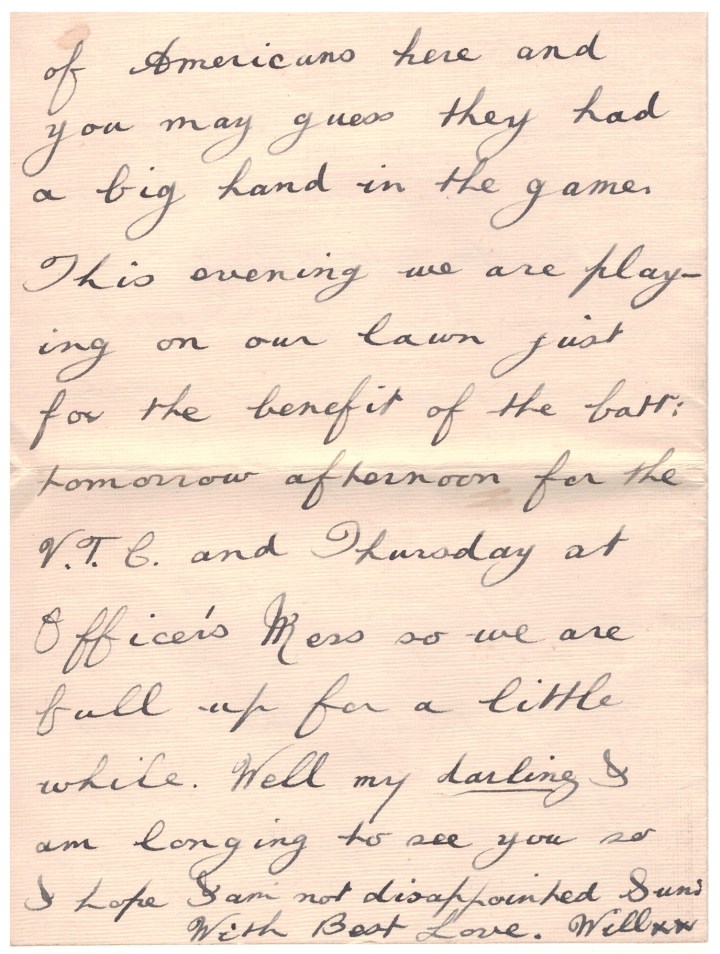 of Americans here and
you may guess they had
a big hand in the game.
This evening we are play-
ing on our lawn just
for the benefit of the batt:
tomorrow afternoon for the
V.T.C. and Thursday at
Officer's Mess so we are
full up for a little
while. Well my darling I
am longing to see you so
I hope I am not disappointed Sund
With Best Love. Will xx